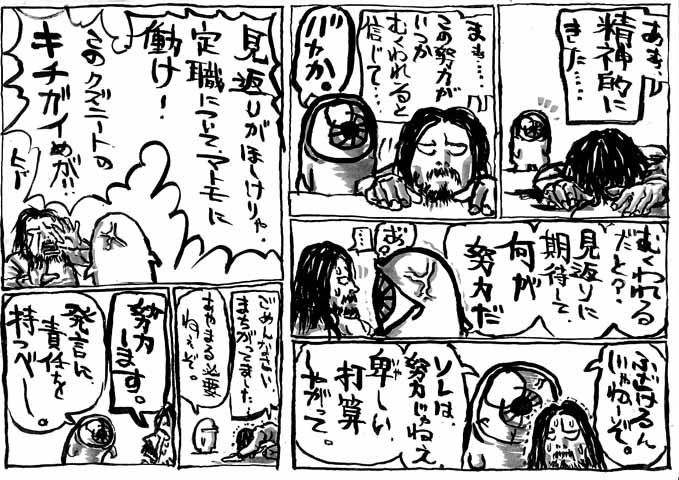 あぁ、
精神的に
きた……
まぁ……
この努力が
いつか
むくわれると
信じて…
バカか。
むくわれる
だと?
見返りに
期待して、
何が
努力だ
あぅ?
…
ふざけるん
じゃねーぞ。
ソレは、
努力じゃねえ
卑しい
打算
しゃがって。
見返りがほしけりゃ、
定職についてマトモに
働け!
このクズニートの
キチガイめが!!
ごめんなさい
まちがってました…
あやまる必要
ねぇぞ。
努力
します。
発言に、
責任を
持つべし。